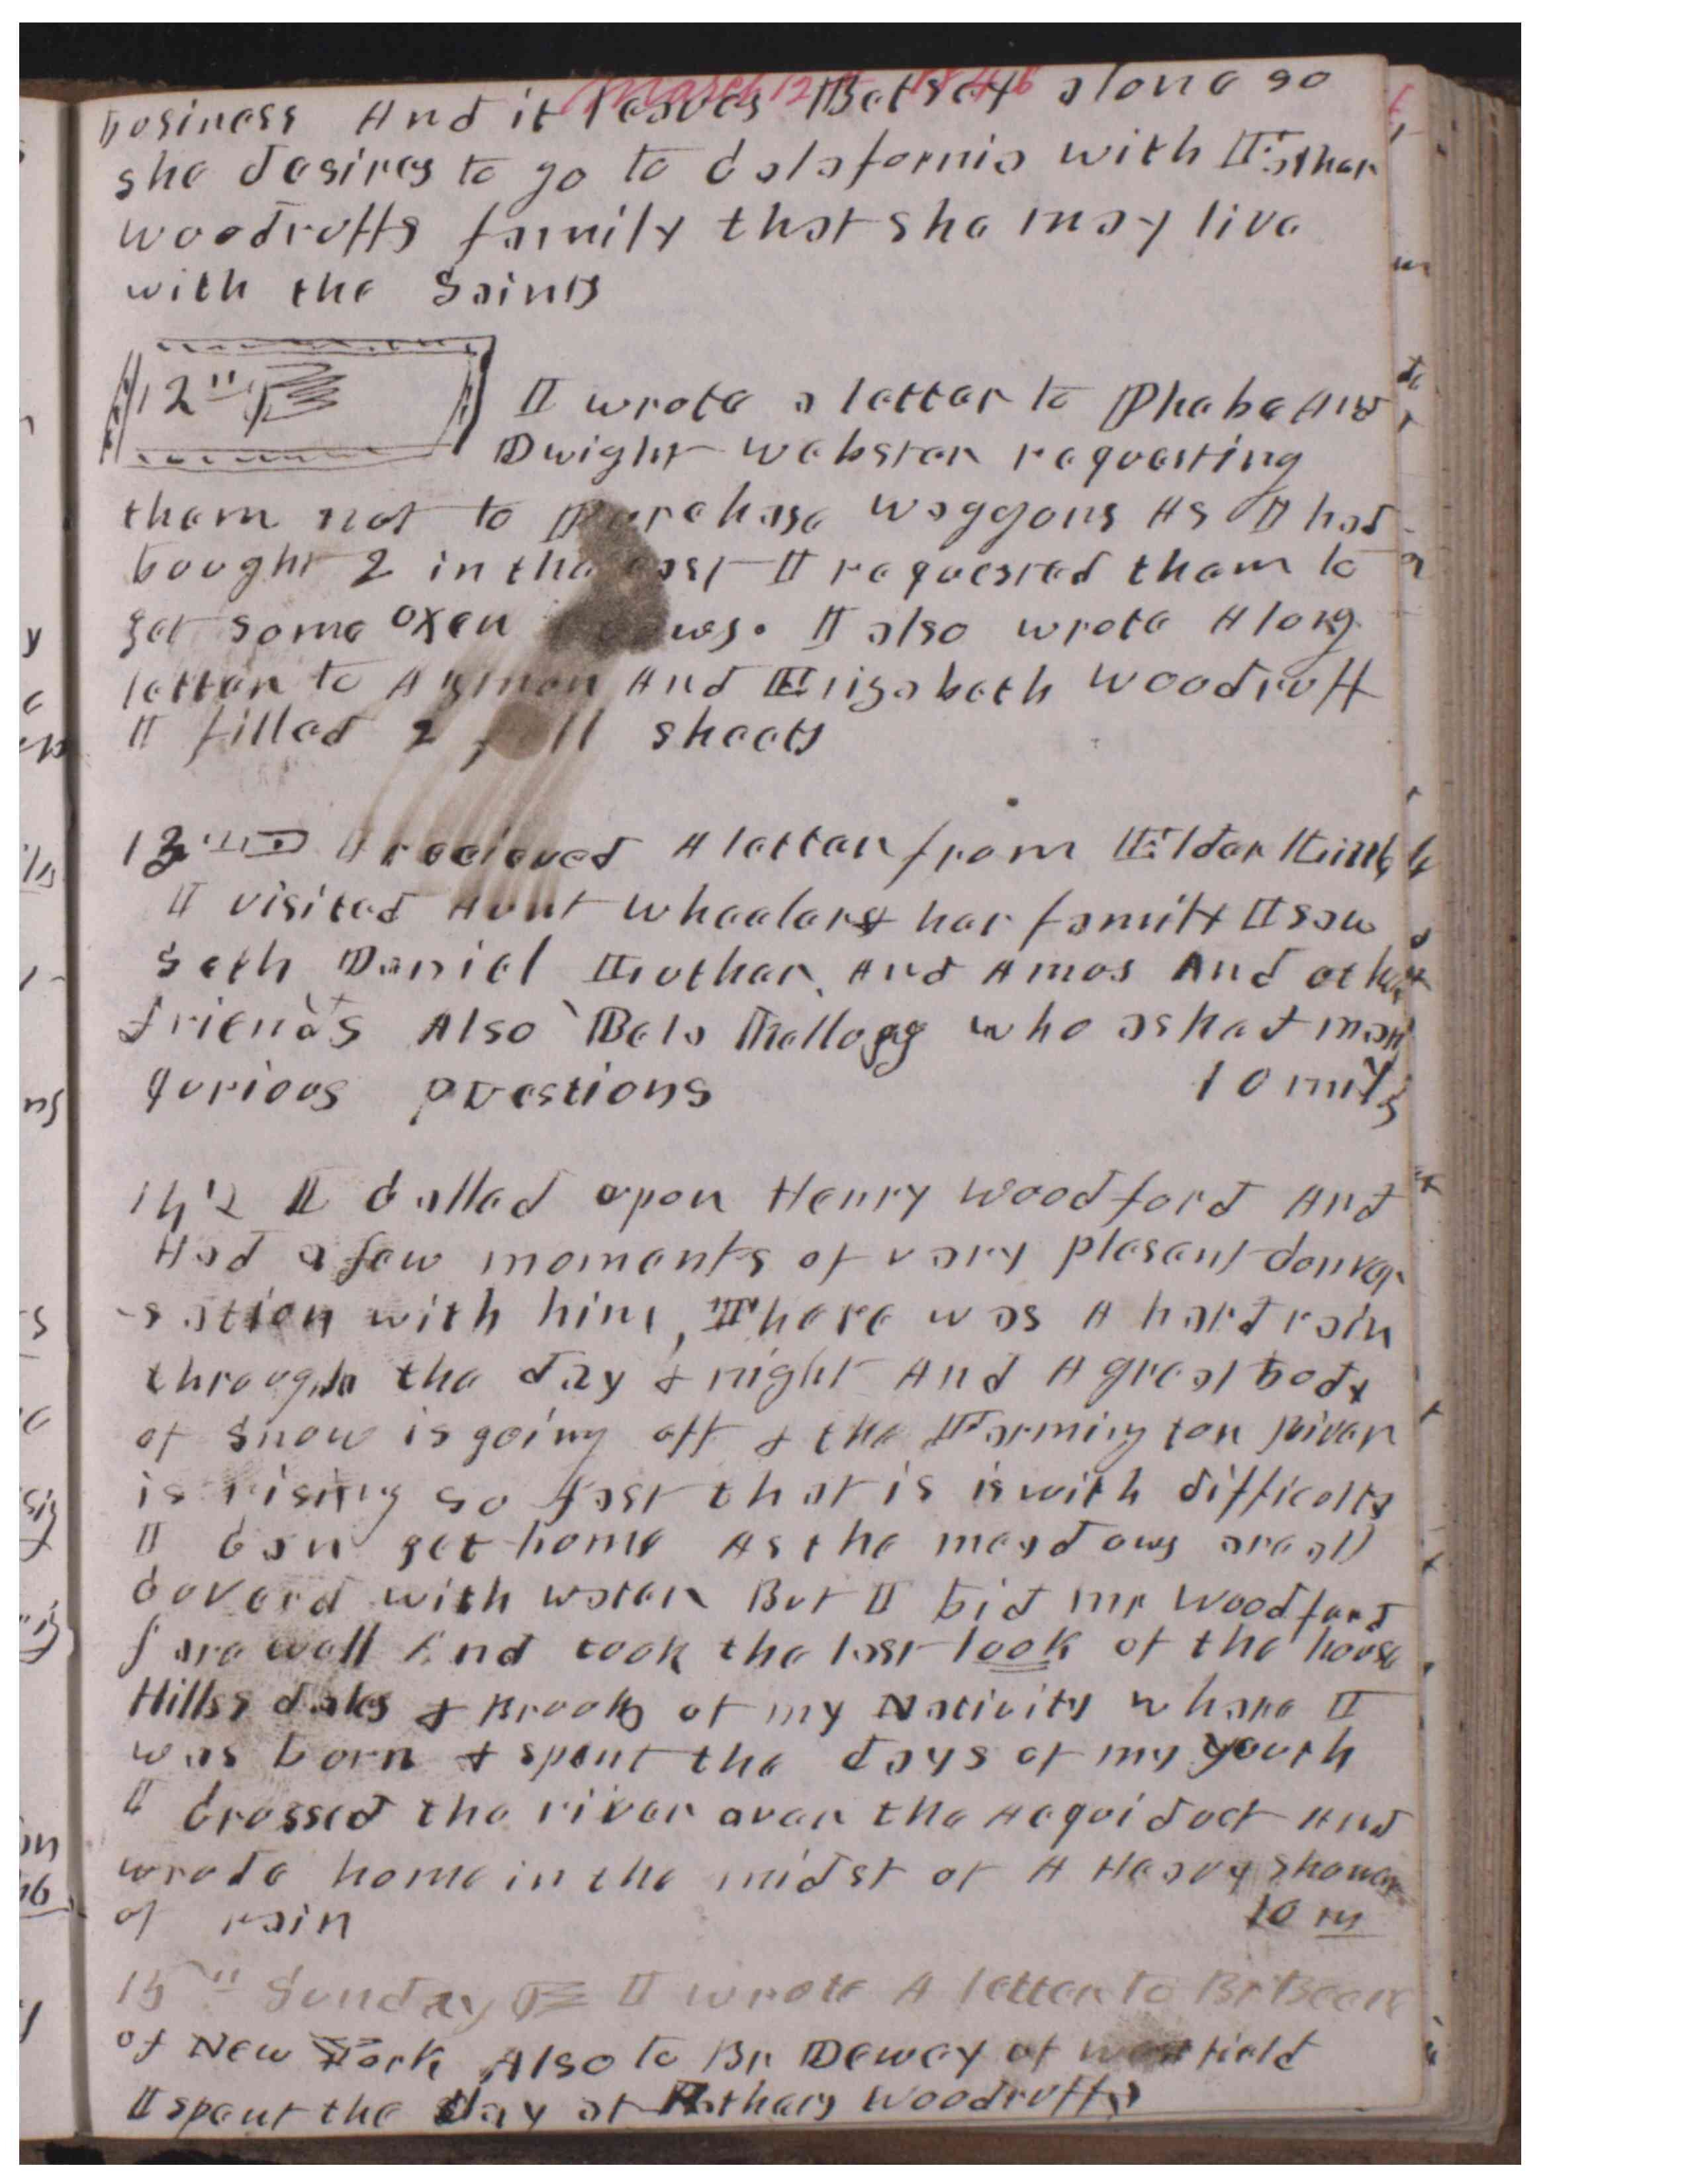 March 12th 1846
business And it leaves Betsey alone so
she desires to go to Calafornia with Father
Woodruffs family that she may live
with the Saints
12th I wrote a letter to Phebe And
Dwight Webster requesting
them not to Purchase waggons As I had
bought 2 in the east I requested them to
get some oxen cows. I also wrote A long
letter to Azmon And Elizabeth Woodruff
I filled 2 full sheets
13th I recieved A letter from Elder
I visited Aunt Wheelers & her family I saw
Seth Daniel Luther, And Amos And other
friends Also Bela Kellogg who asked many
qurious questions 10 mils
14th I Called upon Henry Woodford And
Had a few moments of very plesant Conver
-sation with him, There was A hard rain
through the day & night And A great body
of snow is going off & the Farmington River
is rising so fast that is is with difficulty
I Can get home As the meadows are all
Coverd with water But I bid Mr Woodford
farewell And took the last look of the house
Hills dales & Brooks of my Nativity whare I
was born & spent the days of my youth
I Crossed the river over the Aequiduct And
wrode home in the midst of A Heavy shower
of rain 10 m
15th Sunday I wrote A letter to Br
of New York Also to Br Dewey of Westfield
I spent the Day at Fathers Woodruffs